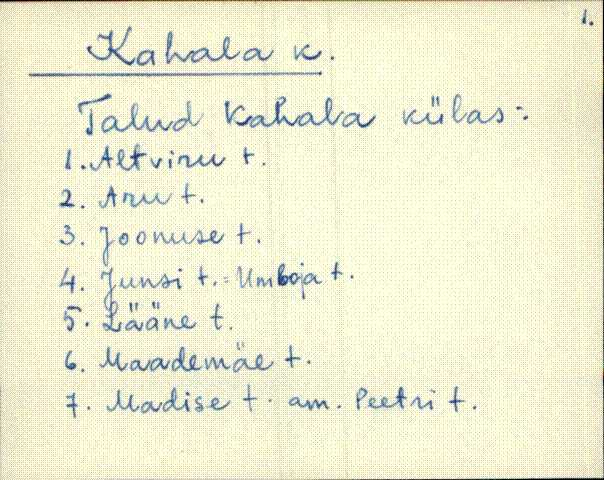 1.
Kahala k.
Talud Kahala külas:
1. Altviru t.
2. Aru t.
3. Joonuse t.
4. Junsi t. = Umboja t.
5. Lääne t.
6. Maademäe t.
7. Madise t. am. Peetri t.